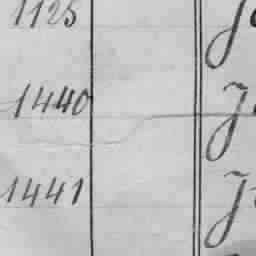 1125
1440
1441